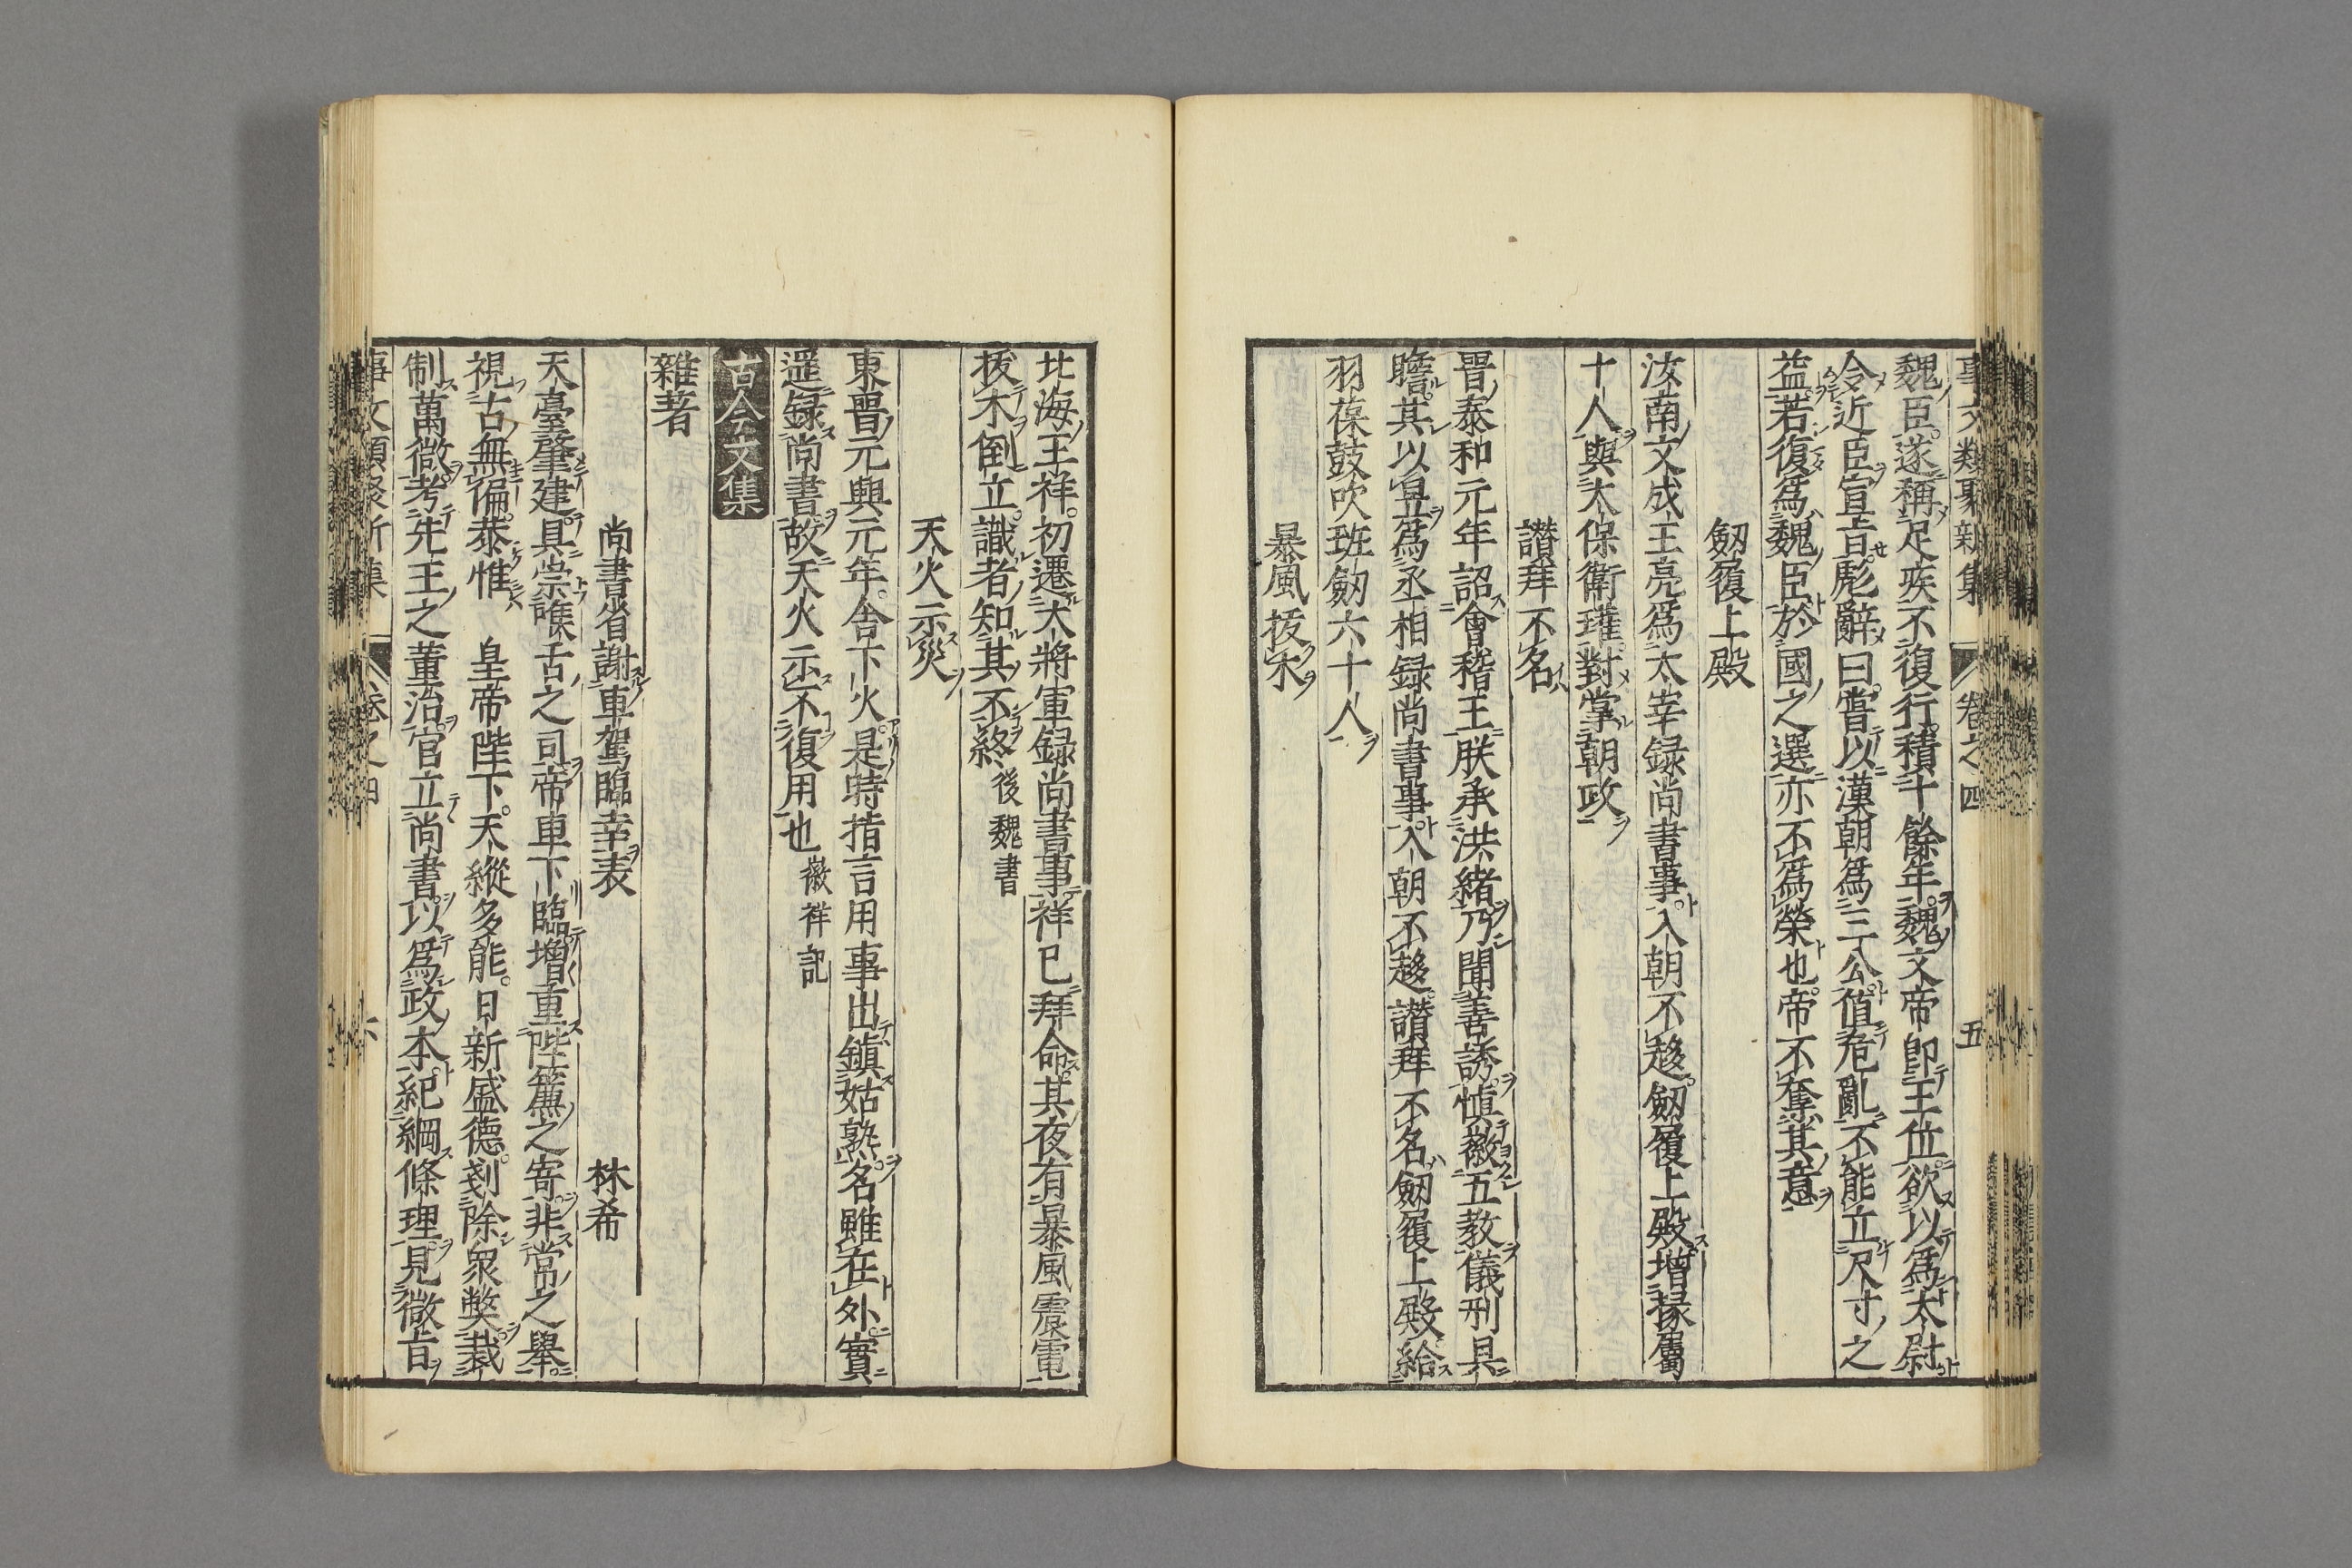 事文類聚新集 卷之四 五
魏臣遂稱足疾不復行積十餘年魏文帝卽王位欲以爲太尉
令近臣宣旨彪辭曰嘗以漢朝爲三公值危亂不能立尺寸之
益若復爲魏臣於國之選亦不爲榮也帝不奪其意
劒履上殿
汝南文成王亮爲太宰録尚書事入朝不趍劒履上殿增掾屬
十人與太保衛瓘對掌朝政
讃拜不名
晉泰和元年詔會稽王朕承洪緒乃聞善誘愼徽五教儀刑具
瞻其以昱爲丞相録尚書事入朝不趍讃拜不名劒履上殿給
羽葆鼓吹班劒六十人
暴風拔木
北海王祥初遷大將軍録尚書事祥已拜命其夜有暴風震電
拔木倒立識者知其不終後魏書
天火示災
東晉元興元年舍下火是時指言用事出鎮姑熟名雖在外實
遥録尚書故天火示不復用也徽祥記
古今文集
雜著
尚書省謝車駕臨幸表 林希
天臺肇建具崇譙舌之司帝車下臨增重陛簾之寄非常之舉
視古無徧恭惟 皇帝陛下天縱多能日新盛德剗除衆獘裁
制萬微考先王之董治官立尚書以爲政本紀綱條理見微旨
事文類聚新集 卷之四 六